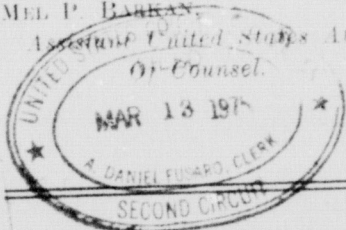 MEL P. BARKAN,
Assistant United States
Of Counsel.
UNITED
MAR 13 197
A. DANIEL FUSARO, CLERK
SECOND CIRCUIT